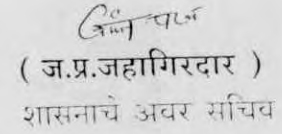 ( ज.प्र.जहागिरदार )
शासनाचे अवर सचिव